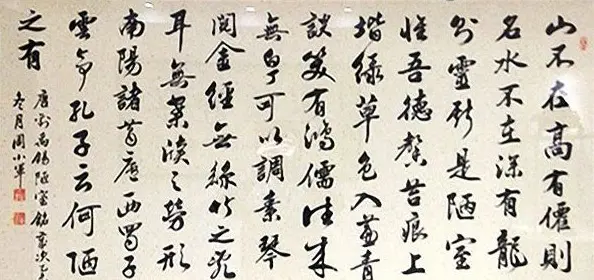 山不在高有僊則
名水不在深有龍
則靈斯是陋室
惟吾德馨苔痕上
堦綠草色入簾青
談笑有鴻儒往來
無白丁可以調素琴
閱金經無絲竹之亂
耳無案牘之勞形
南陽諸葛廬西蜀子
雲亭孔子云何陋
之有
唐劉禹錫陋室銘歲次
冬月周小軍